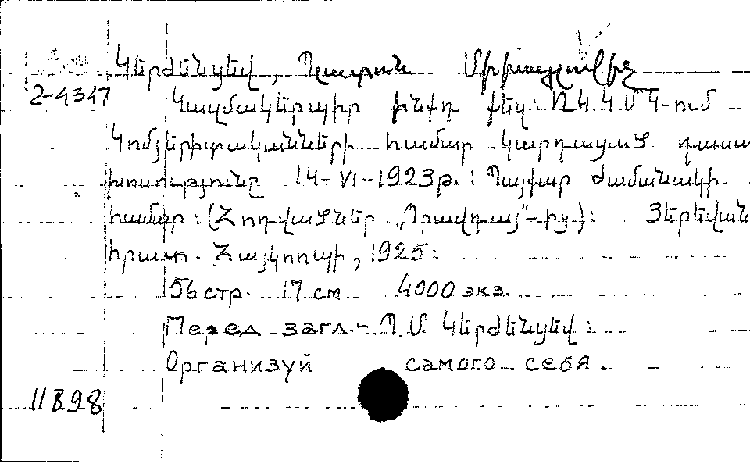 Կերժենցեվ, Պլատոն Միխայլովիչ
2-4347
Կազմակերպիր ինքդ քեզ: Ռ.Կ.Կ.Մ Կ-ում
Կոմյերիտականների համար կարդացած դասա
խոսությունը 14-VI-1923թ.: Պայքար ժամանակի
համար: (Հոդվածներ "Պրավդայ"-ից): Յերեվան
հրատ. Հայկոոպի, 1925:
156 стр. 17 см 4000 экз.
Перед загл.- Պ.Մ. Կերժենցեվ:
Организуй самого себя.
11898